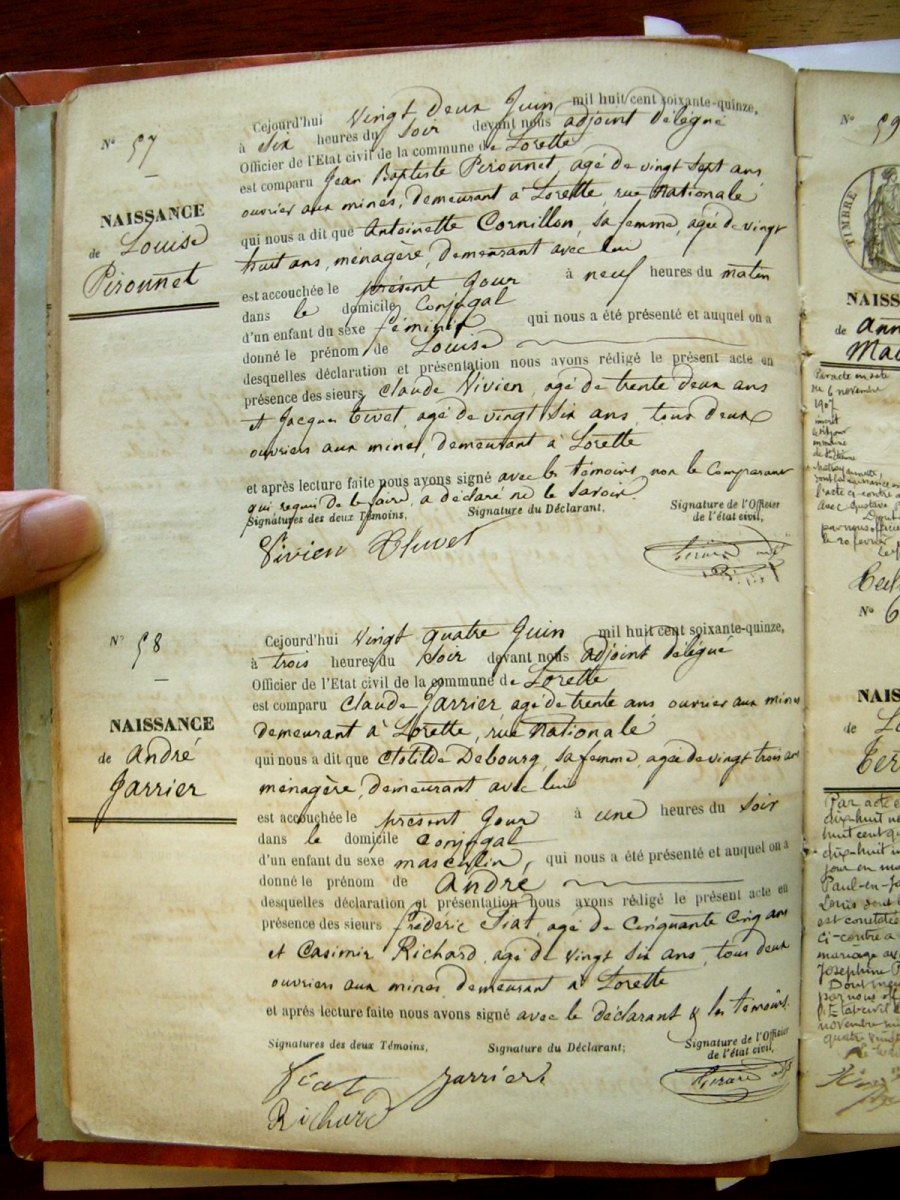 N° 57
NAISSANCE
de Louise
Pironnet
Cejourd'hui Vingt deux Juin mil huit cent soixante-quinze,
à Six heures du Soir devant nous adjoint délégué
Officier de l'Etat civil de la commune de Lorette
est comparu Jean Baptiste Pironnet, agé de vingt sept ans
ouvrier aux mines, demeurant à Lorette, rue Nationale
qui nous a dit que Antoinette Cornillon, sa femme, agée de vingt
huit ans, ménagère, demeurant avec lui
est accouchée le présent Jour à neuf heures du matin
dans le domicile Conjugal
d'un enfant du sexe féminin qui nous a été présenté et auquel on a
donné le prénom de Louise
desquelles déclaration et présentation nous avons rédigé le présent acte en
présence des sieurs Claude Vivien, agé de trente deux ans
et Jacques agé de vingt six ans, tous deux
ouvriers aux mines, demeurant à Lorette
et après lecture faite nous avons signé avec les témoins, non le Comparant
qui requis de le faire, a déclaré ne le Savoir.
Signatures des deux Témoins, Signature du Déclarant, Signature de l'Officier
de l'état civil,
Vivien
N° 58
NAISSANCE
de André
Jarrier
Cejourd'hui Vingt quatre Juin mil huit cent soixante-quinze,
à trois heures du Soir devant nous adjoint délégué
Officier de l'Etat civil de la commune de Lorette
est comparu Claude Jarrier agé de trente ans ouvrier aux mines
demeurant à Lorette, rue Nationale
qui nous a dit que Clotilde Debourg, sa femme, agée de vingt trois ans
ménagère, demeurant avec lui
est accouchée le présent Jour à une heures du Soir
dans le domicile Conjugal
d'un enfant du sexe masculin, qui nous a été présenté et auquel on a
donné le prénom de André
desquelles déclaration et présentation nous avons rédigé le présent acte en
présence des sieurs frédéric Siat, agé de Cinquante Cinq ans
et Casimir Richard, agé de vingt Six ans, tous deux
ouvriers aux mines demeurant à Lorette
et après lecture faite nous avons signé avec le déclarant & les témoins.
Signatures des deux Témoins, Signature du Déclarant; Signature de l'Officier
de l'état civil,
Siat Jarrier
Richard
N° 59
TIMBRE
NAISS
de ann
Par acte en date
du 6 novembre
1907
N° 6
NAISS
de
Par acte
Paul-en-Ja
mariage
Josephine
novembre